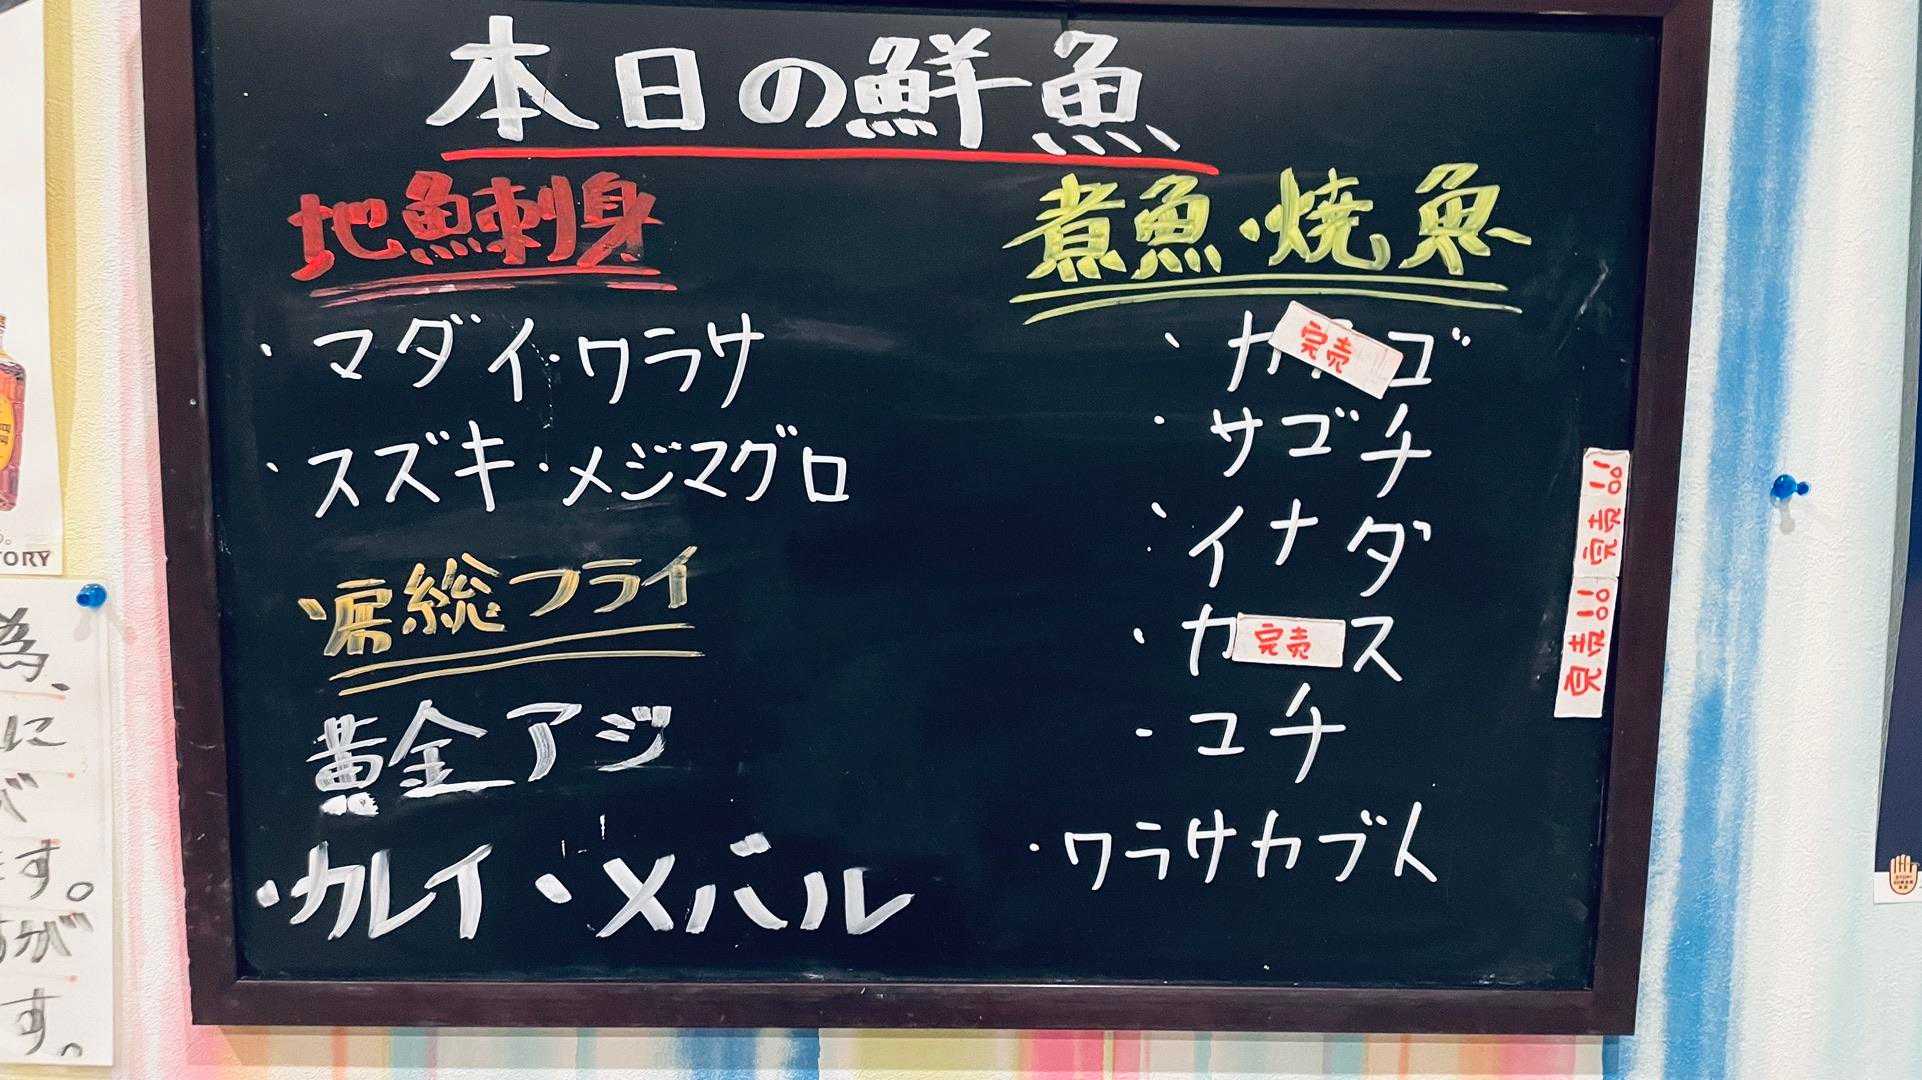 本日の鮮魚
地魚刺身
・マダイ・ワラサ
・スズキ・メジマグロ
・房総フライ
黄金アジ
・カレイ・メバル
煮魚・焼魚
・カ 完売 ゴ
・サゴチ
・イナダ
・カ 完売 ス
・コチ
・ワラサカブト
完売!!
完売!!!
TORY
為、
に
が
ます。
すが
す。